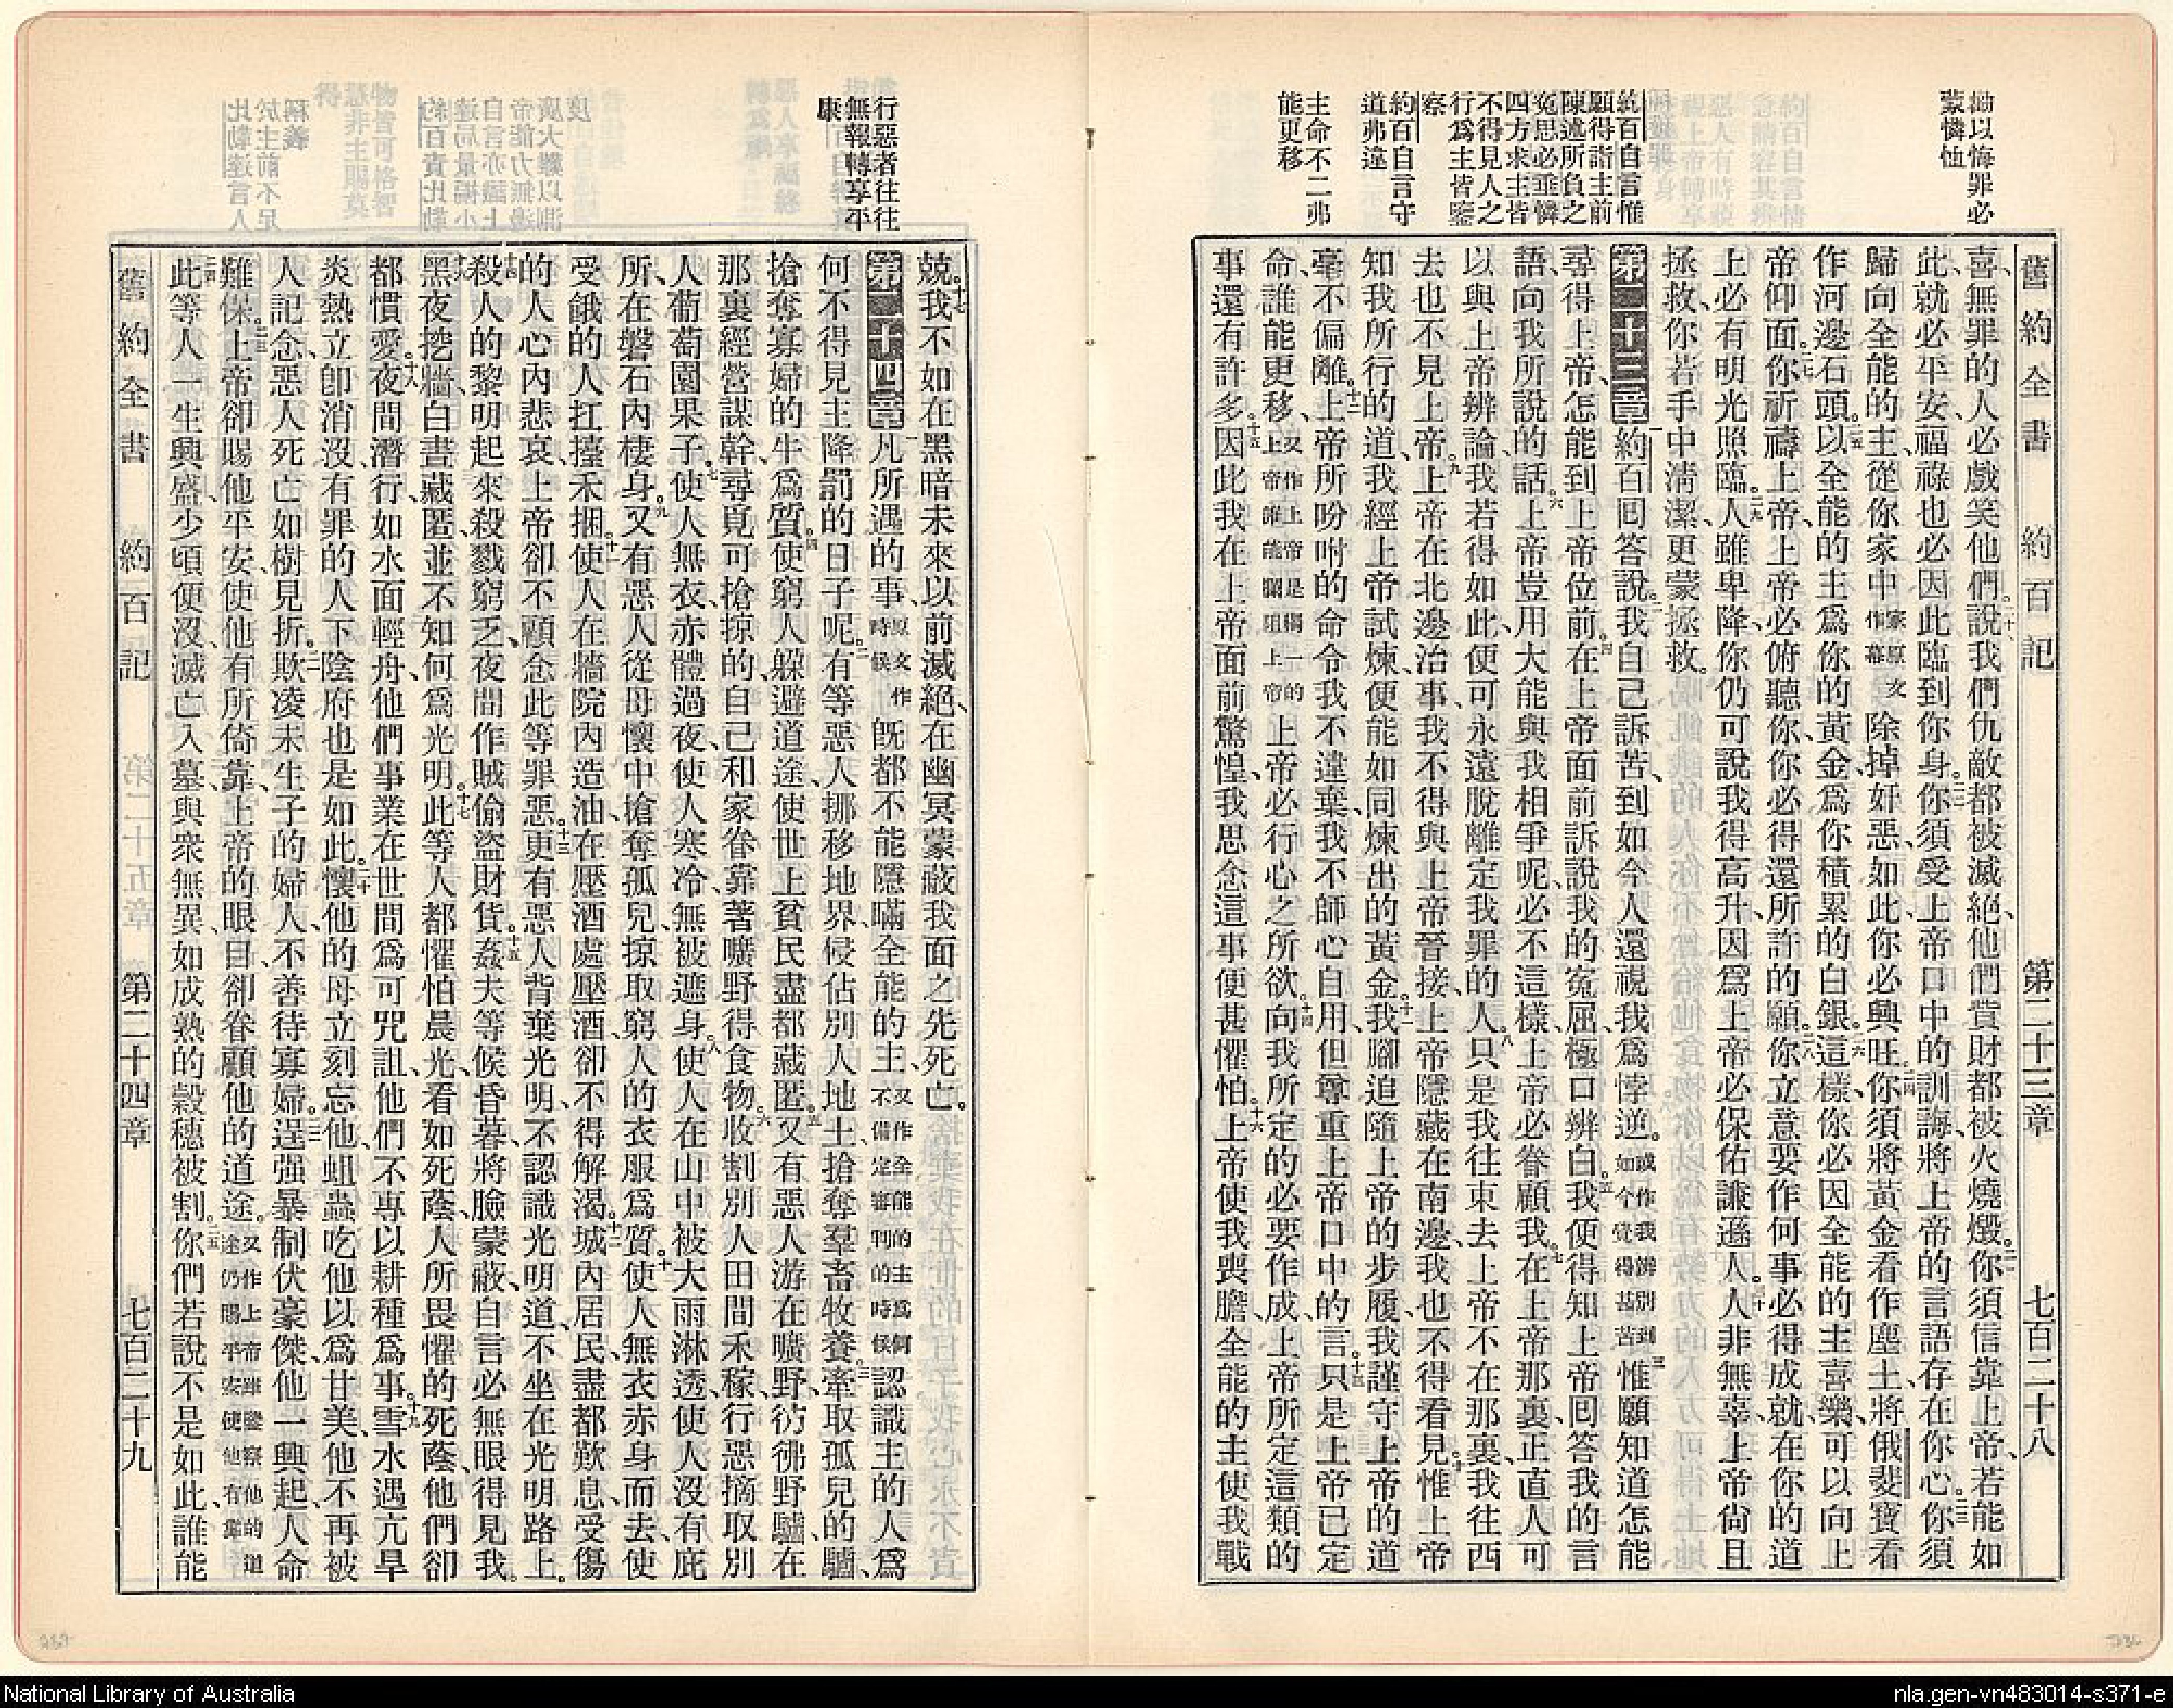 勗以悔罪必
蒙憐恤
約百自言惟
願得詣主前
陳述所負之
冤思必垂憐
四方求主皆
不得見人之
行爲主皆鑒
察
約百自言守
道弗違
主命不二弗
能更移
舊約全書 約百記 第二十三章 七百二十八
喜、無罪的人必戲笑他們。二十說、我們仇敵都被滅絕、他們貲財都被火燒燬。二一你須信靠上帝、若能如
此、就必平安、福祿也必因此臨到你身。二二你須受上帝口中的訓誨、將上帝的言語存在你心。二三你須
歸向全能的主、從你家中家原文作幕除掉奸惡、如此你必興旺。二四你須將黃金看作塵土、將俄斐寶看
作河邊石頭。二五以全能的主爲你的黃金、爲你積累的白銀。二六這樣、你必因全能的主喜樂、可以向上
帝仰面。二七你祈禱上帝、上帝必俯聽你、你必得還所許的願。二八你立意要作何事、必得成就、在你的道
上必有明光照臨。二九人雖卑降、你仍可說我得高升、因爲上帝必保佑謙遜人。三十人非無辜、上帝尙且
拯救、你若手中清潔、更蒙拯救。
第二十三章 一約百回答說。二我自己訴苦、到如今人還視我爲悖逆。或作我辨別到如今覺得甚苦三惟願知道怎能
尋得上帝、怎能到上帝位前。四在上帝面前訴說我的冤屈、極口辨白。五我便得知上帝回答我的言
語、向我所說的話。六上帝豈用大能與我相爭呢、必不這樣、上帝必眷顧我。七在上帝那裏正直人可
以與上帝辨論、我若得如此、便可永遠脫離定我罪的人。八只是我往東去、上帝不在那裏、我往西
去、也不見上帝。九上帝在北邊治事、我不得與上帝晉接、上帝隱藏在南邊、我也不得看見。十惟上帝
知我所行的道、我經上帝試煉、便能如同煉出的黃金。十一我腳追隨上帝的步履、我謹守上帝的道、
毫不偏離。十二上帝所吩咐的命令我不違棄、我不師心自用、但尊重上帝口中的言。十三只是上帝已定
命、誰能更移、又作上帝是獨一的上帝誰能攔阻上帝上帝必行心之所欲。十四向我所定的必要作成、上帝所定這類的
事還有許多。十五因此我在上帝面前驚惶、我思念這事便甚懼怕。十六上帝使我喪膽、全能的主使我戰
行惡者往往
無報轉享平
康
兢。十七我不如在黑暗未來以前滅絕、在幽冥蒙蔽我面之先死亡。
第二十四章 一凡所遇的事、原文作時候旣都不能隱瞞全能的主、又作全能的主爲何不備定審判的時候認識主的人爲
何不得見主降罰的日子呢。二有等惡人挪移地界、侵佔別人地土、搶奪羣畜牧養。三牽取孤兒的驢、
搶奪寡婦的牛爲質。四使窮人躲避道途、使世上貧民盡都藏匿。五又有惡人游在曠野、彷彿野驢、在
那裏經營謀幹、尋覓可搶掠的、自己和家眷靠著曠野得食物。六收割別人田間禾稼、行惡摘取別
人葡萄園果子。七使人無衣、赤體過夜、使人寒冷、無被遮身。八使人在山中被大雨淋透、使人沒有庇
所、在磐石內棲身。九又有惡人從母懷中搶奪孤兒、掠取窮人的衣服爲質。十使人無衣赤身而去、使
受餓的人扛擡禾捆。十一使人在牆院內造油、在壓酒處壓酒、卻不得解渴。十二城內居民、盡都歎息、受傷
的人心內悲哀、上帝卻不顧念此等罪惡。十三更有惡人背棄光明、不認識光明道、不坐在光明路上。
十四殺人的黎明起來、殺戮窮乏、夜間作賊偷盜財貨。十五姦夫等候昏暮、將臉蒙蔽、自言必無眼得見我。
十六黑夜挖牆、白晝藏匿、並不知何爲光明。十七此等人都懼怕晨光、看如死蔭、人所畏懼的死蔭、他們卻
都慣愛。十八夜間潛行、如水面輕舟、他們事業在世間爲可咒詛、他們不專以耕種爲事。十九雪水遇亢旱
炎熱、立卽消沒、有罪的人下陰府也是如此。二十懷他的母立刻忘他、蛆蟲吃他以爲甘美、他不再被
人記念、惡人死亡如樹見折。二一欺凌未生子的婦人、不善待寡婦。二二逞强暴制伏豪傑、他一興起、人命
難保。二三上帝卻賜他平安、使他有所倚靠、上帝的眼目、卻眷顧他的道途。又作上帝雖鑒察他的道途仍賜平安使他有靠
二四此等人一生興盛、少頃便沒、滅亡入墓、與衆無異、如成熟的穀穗被割。二五你們若說不是如此、誰能
舊約全書 約百記 第二十四章 七百二十九
National Library of Australia
nla.gen-vn483014-s371-e